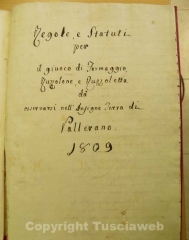 Regole, e Statuti
per
il giuoco di Formaggio,
Ruzzolone, e Ruzzoletta
da
osservarsi nell' Insigne Terra di
Vallerano.
1809
Copyright Tusciaweb